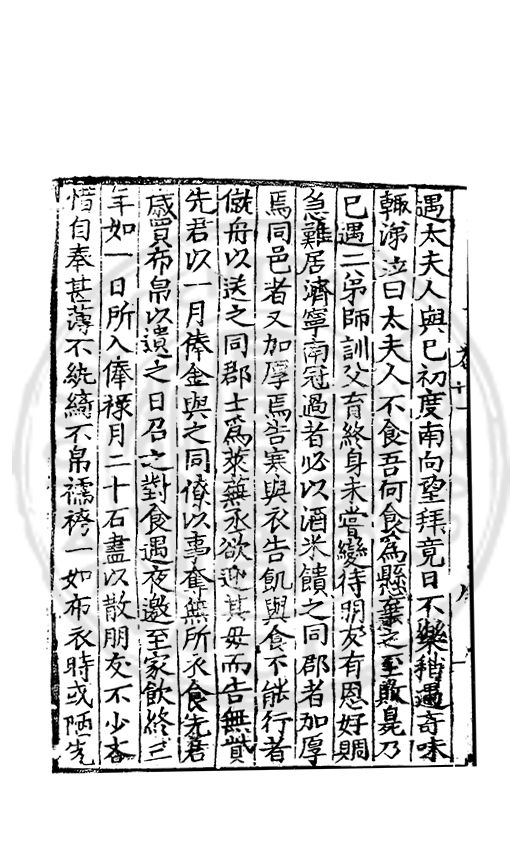 遇太夫人與已初度南向望拜竟日不樂稍遇奇味
輙涕泣曰太夫人不食吾何食爲懸棄之至敗臭乃
已遇二弟師訓父育終身未嘗變待朋友有恩好賙
急難居濟寧南冠過者必以酒米饋之同郡者加厚
焉同邑者又加厚焉告寒與衣告飢與食不能行者
僦舟以送之同郡士爲萊蕪丞欲迎其母而告無貲
先君以一月俸金與之同僚以事奪無所衣食先君
歲買布帛以遺之日召之對食遇夜邀至家飲終三
年如一日所入俸祿月二十石盡以散朋友不少吝
惜自奉甚薄不紈綺不帛襦袴一如布衣時或陋先